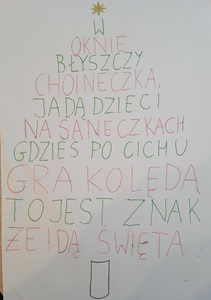 W
OKNIE
BŁYSZCZY
CHOINECZKA,
JADĄ DZIECI
NA SANECZKACH
GDZIEŚ PO CICHU
GRA KOLĘDA
TO JEST ZNAK
ŻE IDĄ ŚWIĘTA.